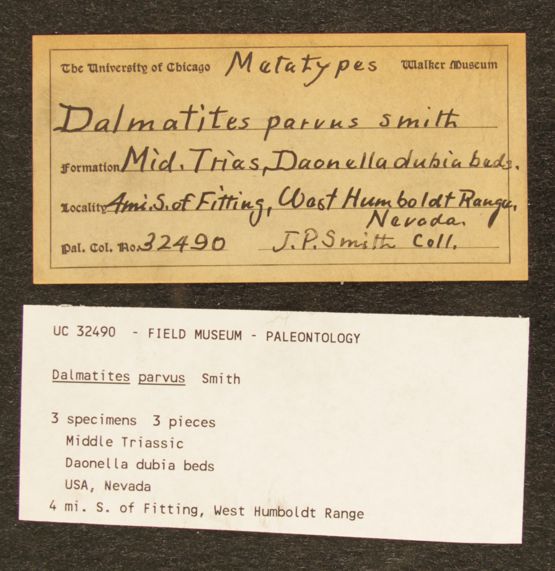 The University of Chicago Metatypes Walker Museum
Dalmatites parvus Smith
Formation Mid. Trias, Daonella dubia beds.
Locality 4mi. S. of Fitting, West Humboldt Range,
Nevada.
Pal. Col. No. 32490 J.P. Smith Coll.
UC 32490 - FIELD MUSEUM - PALEONTOLOGY
Dalmatites parvus Smith
3 specimens 3 pieces
Middle Triassic
Daonella dubia beds
USA, Nevada
4 mi. S. of Fitting, West Humboldt Range